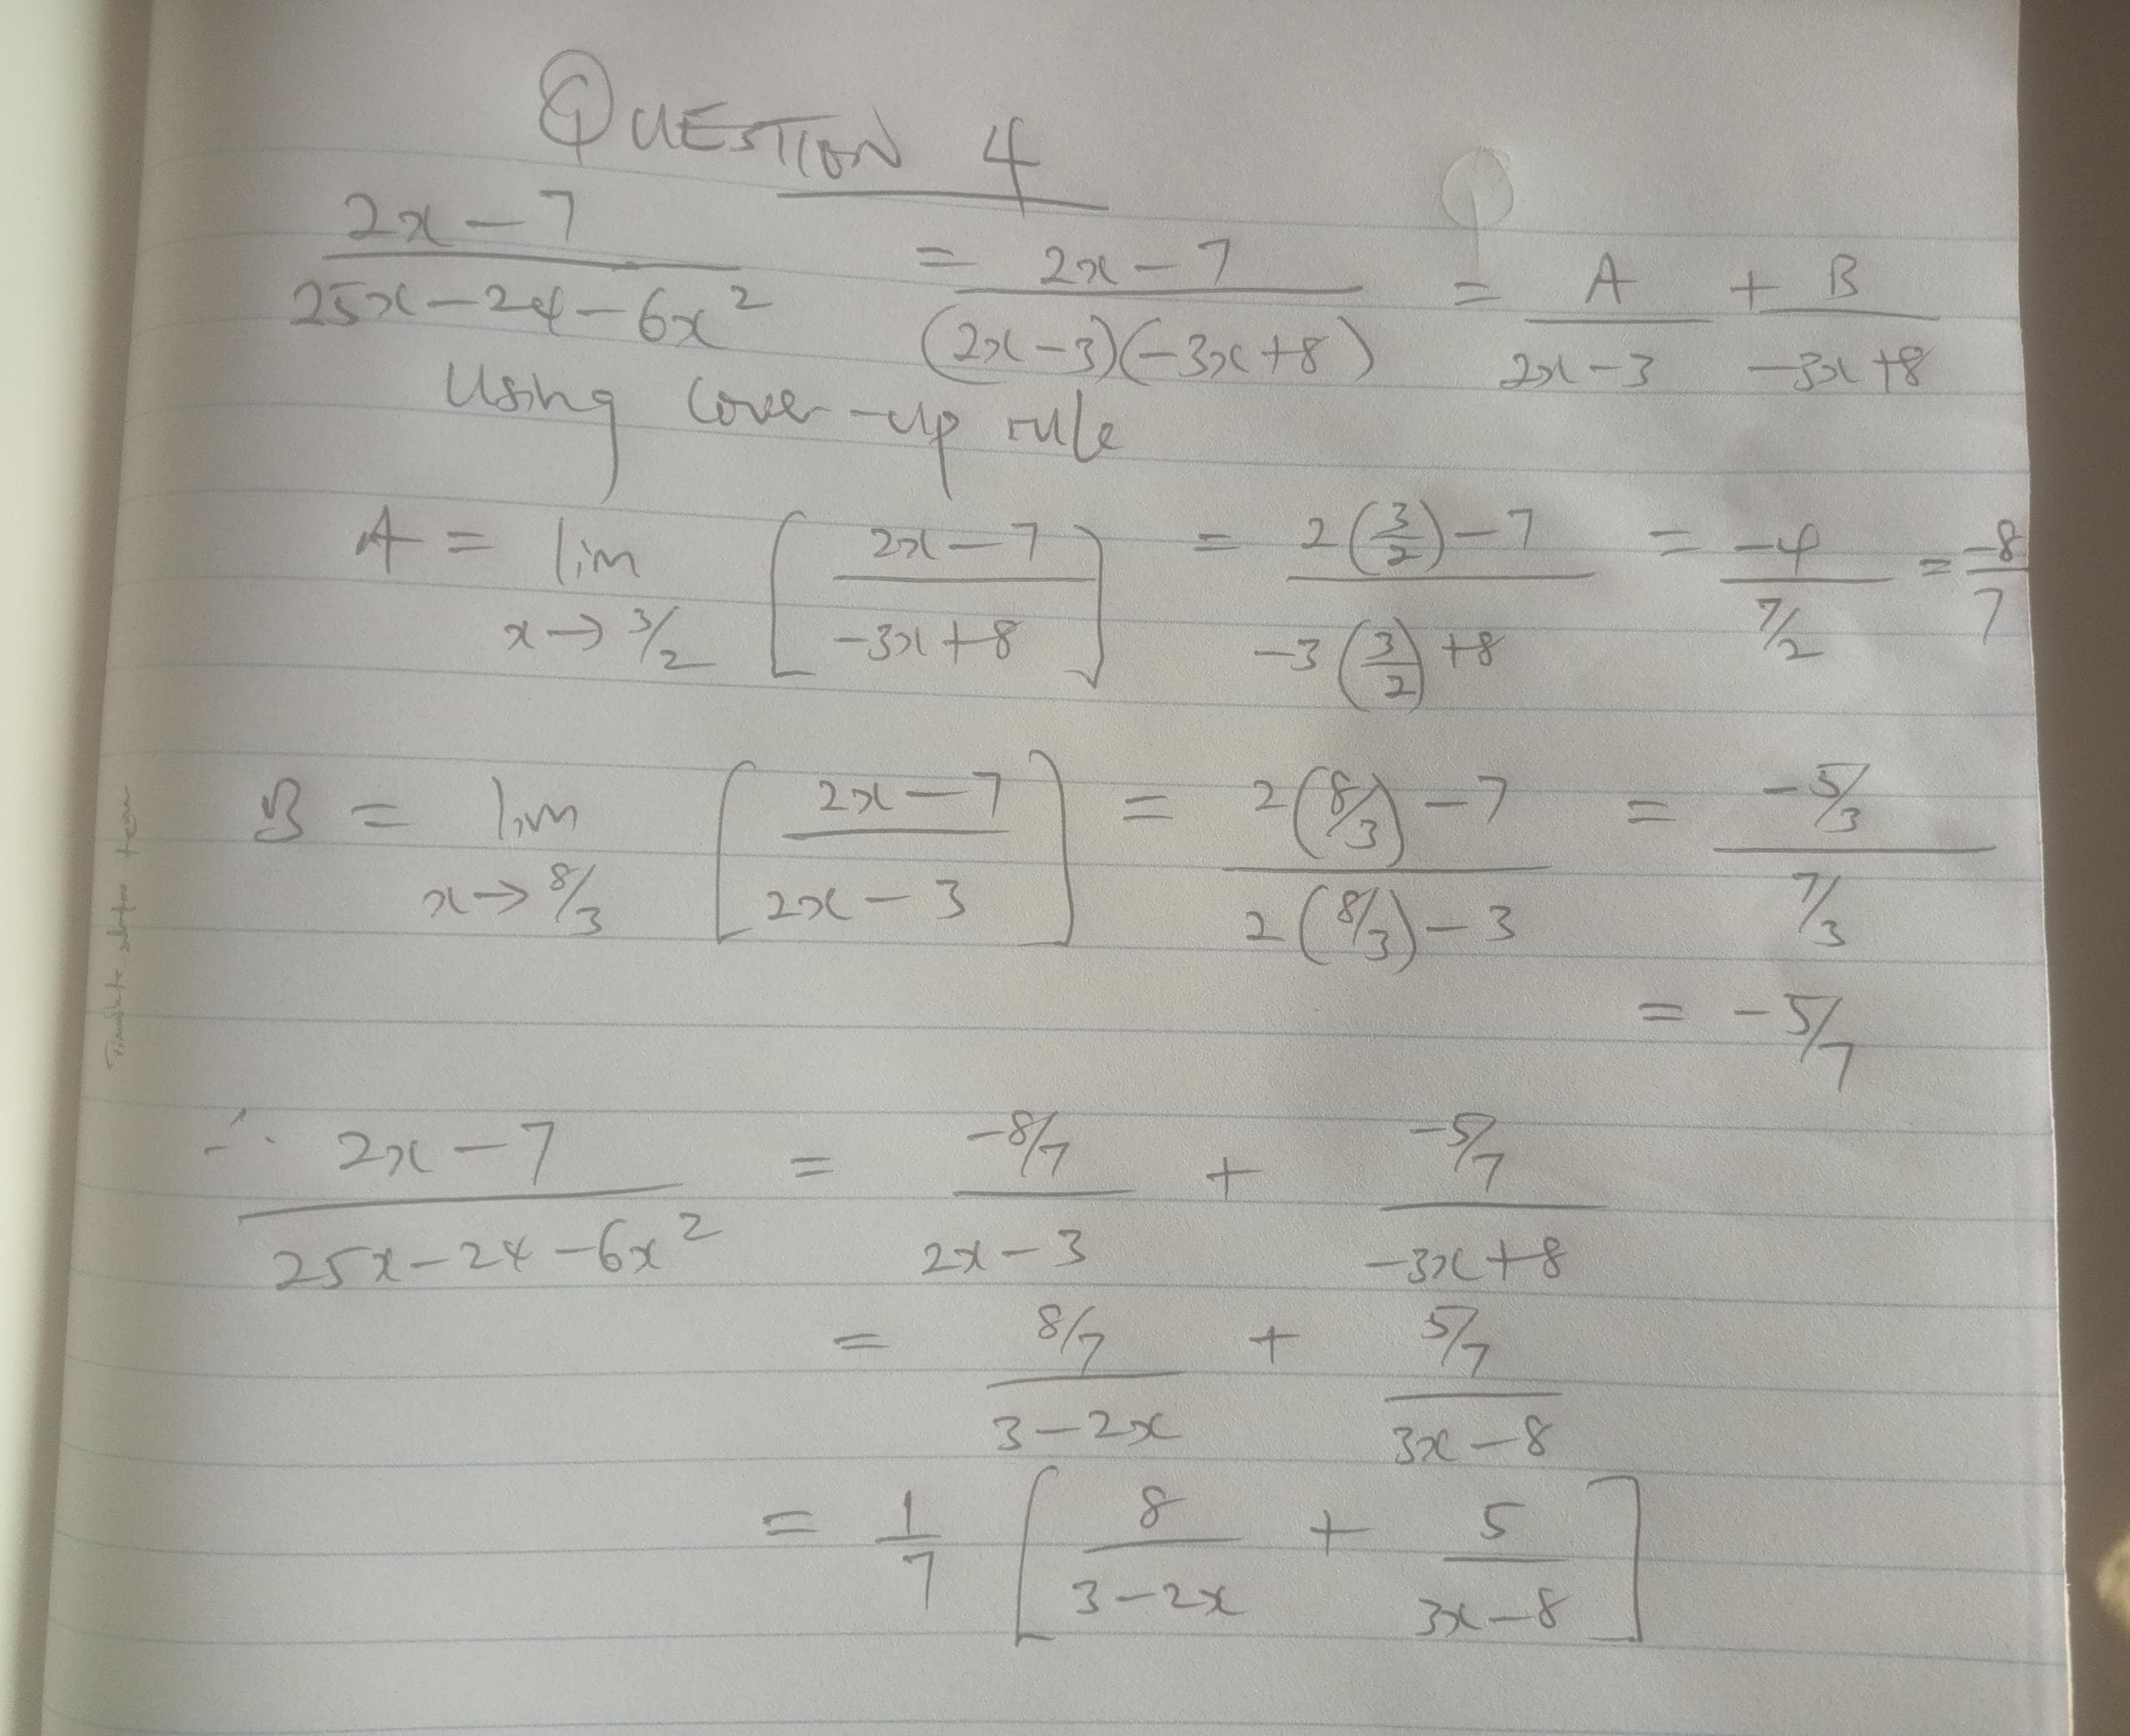 QUESTION 4
2x-7/25x-24-6x² = 2x-7/(2x-3)(-3x+8) = A/2x-3 + B/-3x+8
Using cover-up rule
A = lim x→3/2 [2x-7/-3x+8] = 2(3/2)-7/-3(3/2)+8 = -4/7/2 = -8/7
B = lim x→8/3 [2x-7/2x-3] = 2(8/3)-7/2(8/3)-3 = -5/3/7/3
= -5/7
∴ 2x-7/25x-24-6x² = -8/7/2x-3 + -5/7/-3x+8
= 8/7/3-2x + 5/7/3x-8
= 1/7 [8/3-2x + 5/3x-8]